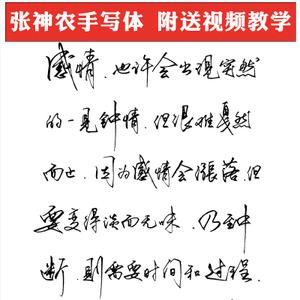 张神农手写体 附送视频教学
感情,也许会出现突然
的一见钟情,但很难戛然
而止,因为感情会涨落,但
要变得淡而无味,乃至中
断,则需要时间和过程.